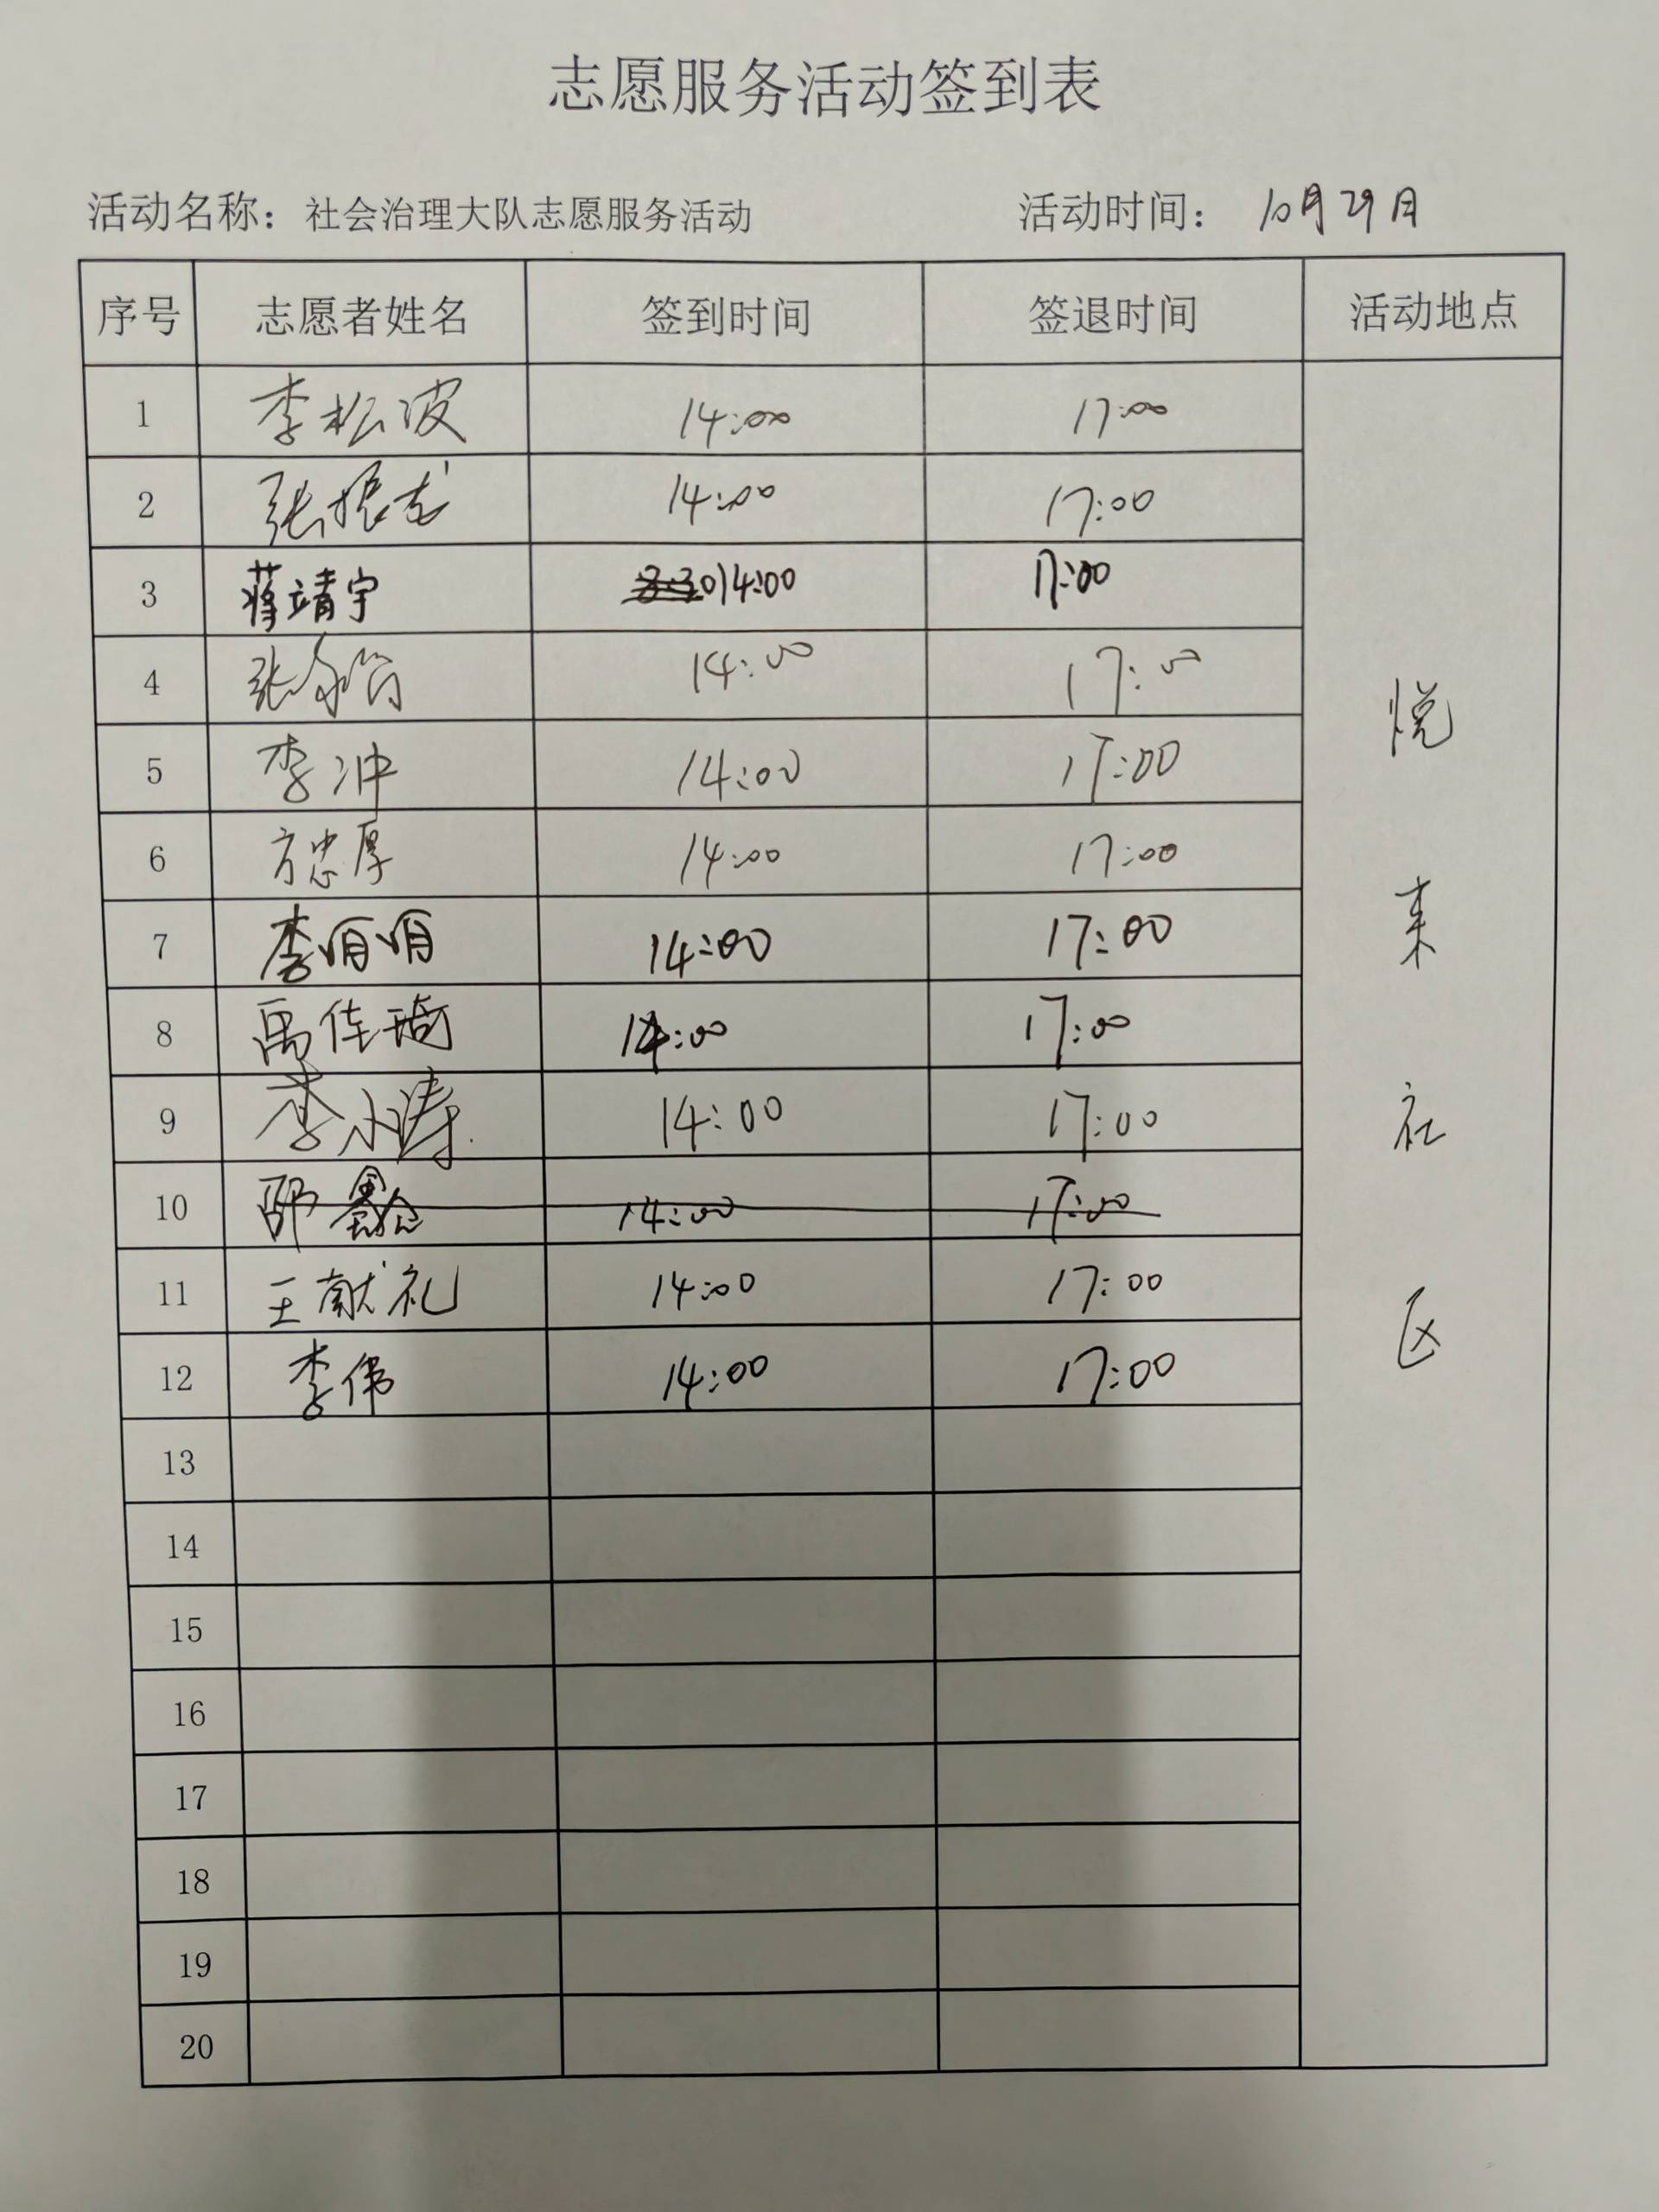 志愿服务活动签到表
活动名称：社会治理大队志愿服务活动 活动时间： 10月29日
序号 志愿者姓名 签到时间 签退时间 活动地点
1 李松波 14:00 17:00
2 张振龙 14:00 17:00
3 蒋靖宇 14:00 17:00
4 张 14:00 17:00
5 李冲 14:00 17:00
6 方忠厚 14:00 17:00
7 李明明 14:00 17:00
8 禹佳琦 14:00 17:00
9 李小涛 14:00 17:00
10 邵 14:00 17:00
11 王献礼 14:00 17:00
12 李伟 14:00 17:00
13
14
15
16
17
18
19
20
悦来社区